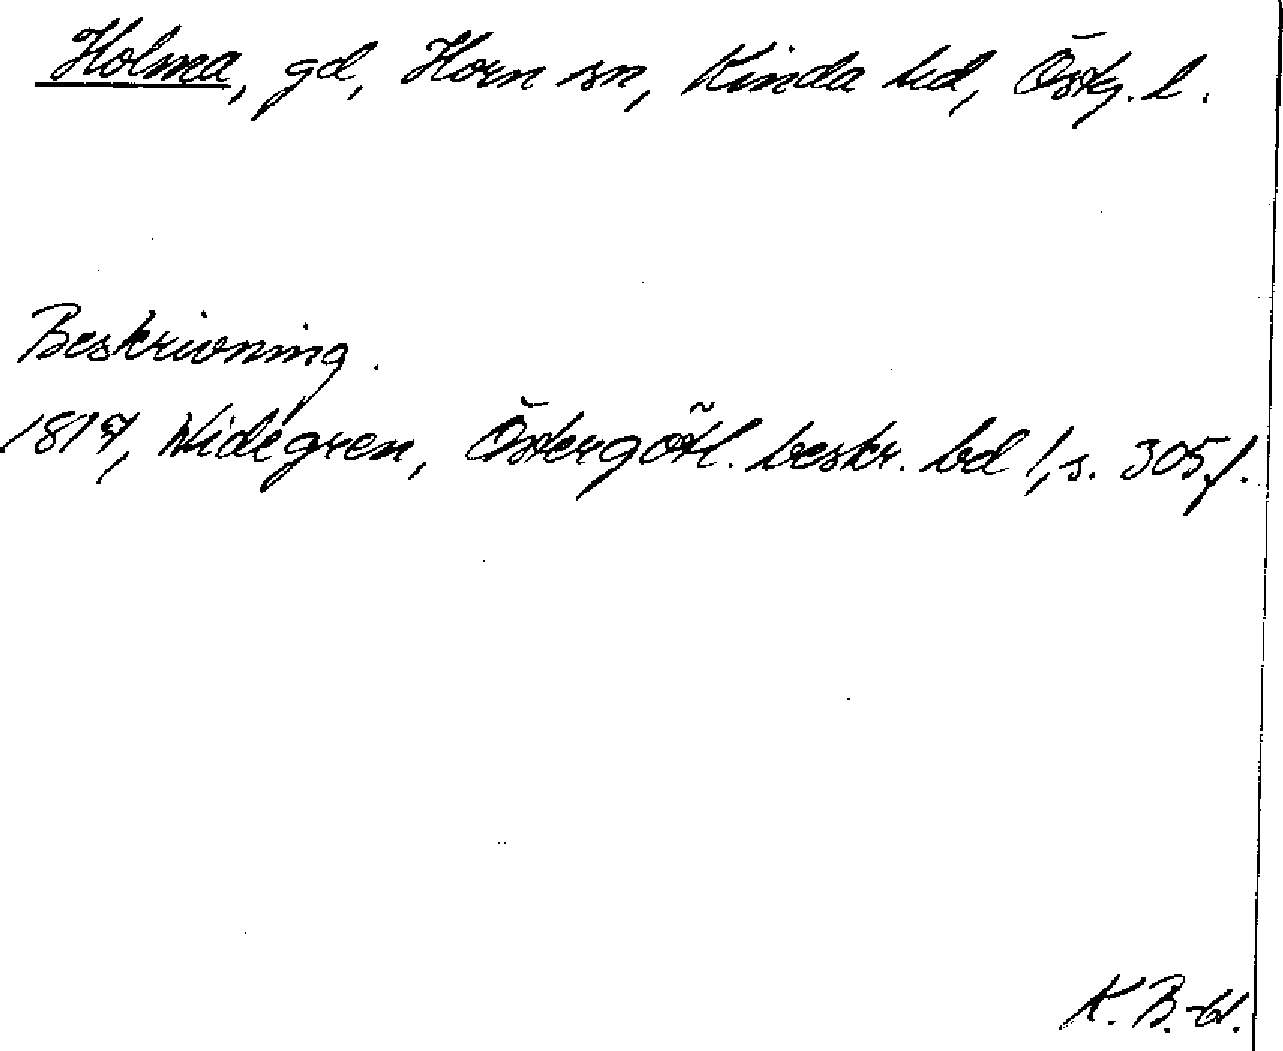 Holma, gd, Horn sn, Kinda hd, Östg. l.
Beskrivning.
1817, Widegren, Östergötl. beskr. bd 1, s. 305 f.
K. B.-W.